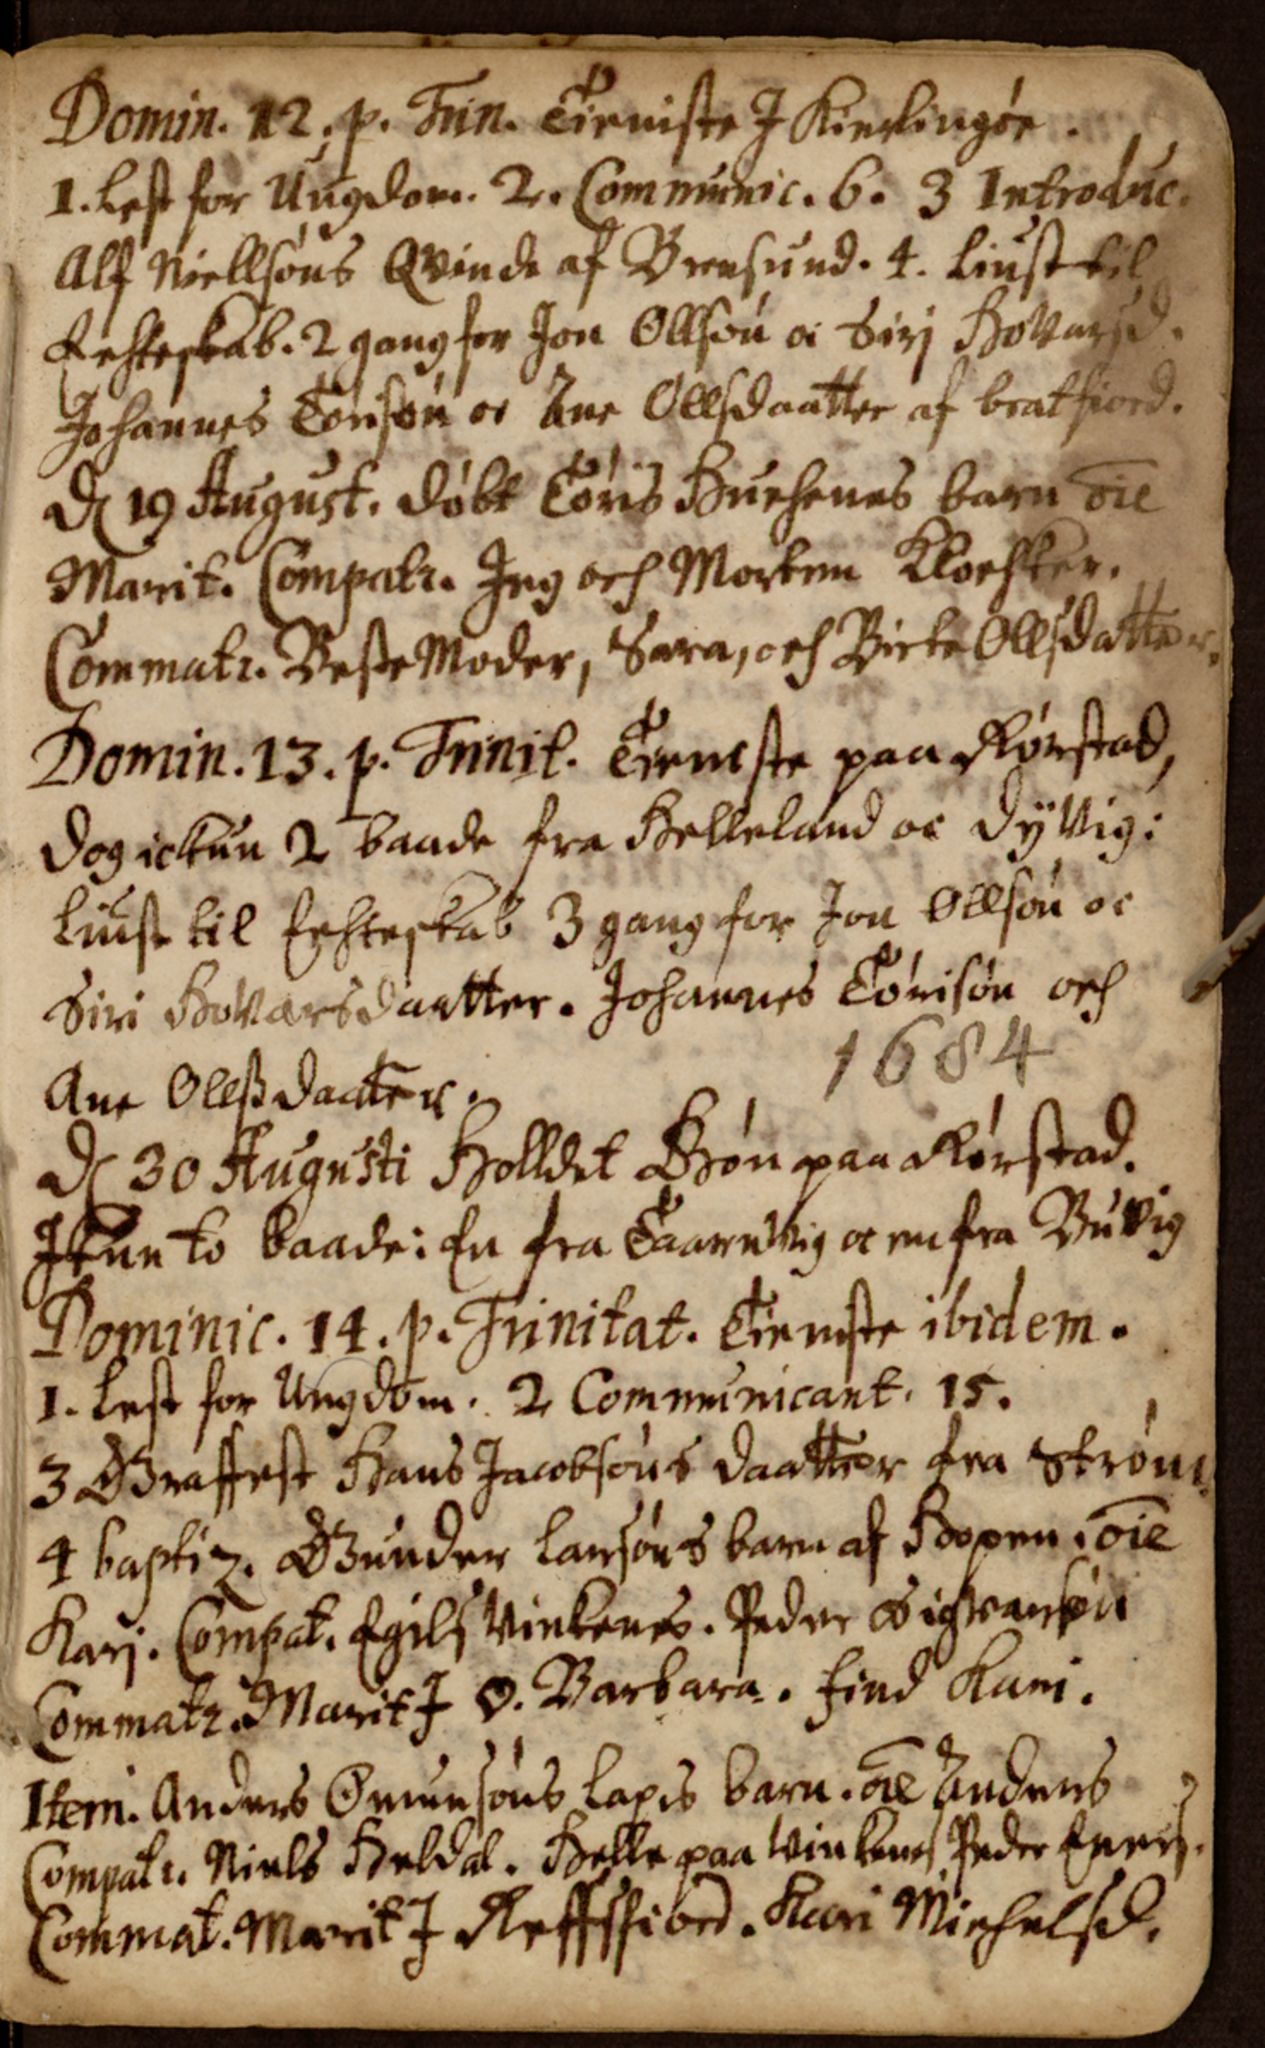 Domin. 12. p. Trin. Tieniste J Kierlingøe.
1. Lest for Ungdom. 2. Communic. 6. 3 Introduc.
Alf Niellsøns Qvinde af Brensund. 4. Liust til
Echteskab. 2 gang for Jon Ollsøn oc Sirj HoVarsd.
Johannes Tørisøn oc Ane Ollsdaatter af bratfiord.
D 19 August. døbt Tøris Huchenes barn oie
Marit. Compatr. Jeg och Morten Klocker.
Commatr. BesteModer, Sara, och Birte Ollsdatter.
Domin. 13. p. Trinit. Tieniste paa Rørstad,
dog ickun 2 baade fra Helleland oc DyVig:
Liust til Echteskab 3 gang for Jon Ollsøn oc
Siri HoVarsdaatter. Johannes Tørisøn och
Ane Ollsdaatter.
1684
D 30 Augusti Holldet Bøn paa Rørstad.
Ikun to baade: En fra TaarnVig oc en fra BuVig
Dominic. 14. p. Trinitat. Tieniste ibidem.
1. Lest for Ungdom. 2 Communicant. 15.
3 Graffest Hans Jacobsøns daatter fra Strøm.
4 baptiz. Gunder Larsøns barn af Hopen. oie
Karj. Compat. Egils Vinkenes. Peder Sigvarsøn
Commatr. Marit J O. Barbara. find Kari.
Item. Anders Omunsøns Lapis barn. oie Anders
Compatr. Niels Heldal. Helle paa Vinkenes Peder Evers.
Commat. Marit J Reffsfiord. Kari Michelsd.